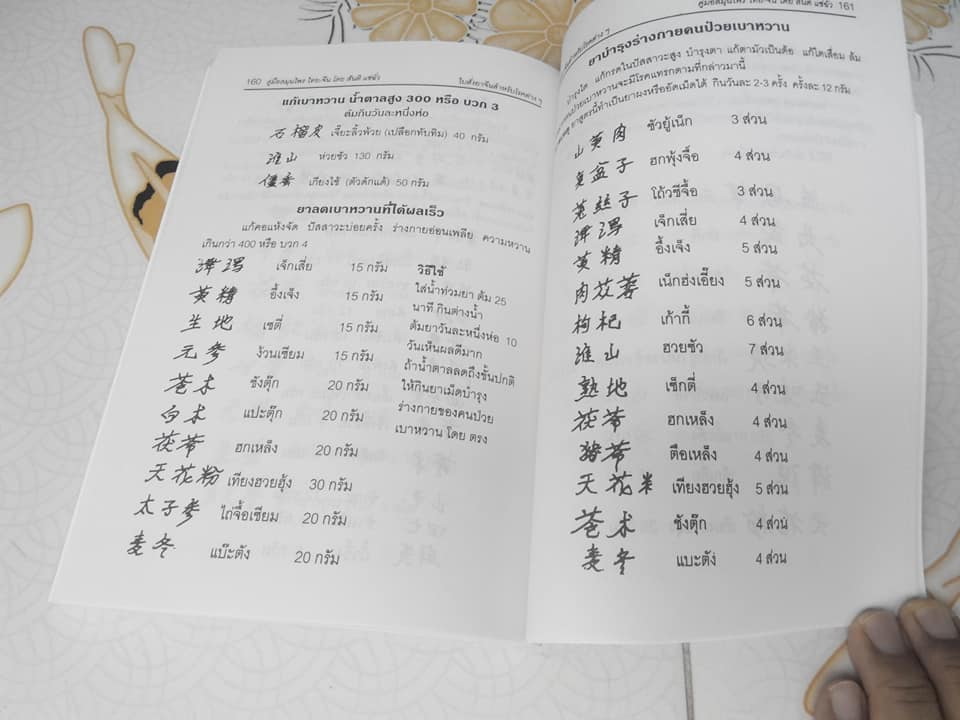 160 คู่มือสมุนไพร ไทย-จีน โดย สันติ แซ่ซัว
ใบสั่งยาจีนสำหรับโรคต่าง ๆ
แก้เบาหวาน น้ำตาลสูง 300 หรือ บวก 3
ต้มกินวันละหนึ่งห่อ
石榴皮 เจี๊ยะลิ้วพ้วย (เปลือกทับทิม) 40 กรัม
淮山 ห่วยซัว 130 กรัม
僵蚕 เกียงไช้ (ตัวดักแด้) 50 กรัม
ยาลดเบาหวานที่ได้ผลเร็ว
แก้คอแห้งจัด ปัสสาวะบ่อยครั้ง ร่างกายอ่อนเพลีย ความหวาน
เกินกว่า 400 หรือ บวก 4
澤瀉 เจ็กเสี่ย 15 กรัม
黄精 อึ้งเจ็ง 15 กรัม
生地 เซตี่ 15 กรัม
元参 ง้วนเซียม 15 กรัม
苍术 ชังตุ๊ก 20 กรัม
白术 แปะตุ๊ก 20 กรัม
茯苓 ฮกเหล็ง 20 กรัม
天花粉 เทียงฮวยฮุ้ง 30 กรัม
太子参 ไถ่จื้อเซียม 20 กรัม
麦冬 แบ๊ะตัง 20 กรัม
วิธีใช้
ใส่น้ำท่วมยา ต้ม 25
นาที กินต่างน้ำ
ต้มยาวันละหนึ่งห่อ 10
วันเห็นผลดีมาก
ถ้าน้ำตาลลดถึงขั้นปกติ
ให้กินยาเม็ดบำรุง
ร่างกายของคนป่วย
เบาหวาน โดย ตรง
คู่มือสมุนไพร ไทย-จีน โดย สันติ แซ่ซัว 161
สำหรับโรคต่าง ๆ
ยาบำรุงร่างกายคนป่วยเบาหวาน
บำรุงไต แก้กรดในปัสสาวะสูง บำรุงตา แก้ตามัวเป็นต้อ แก้ไตเสื่อม ล้ม
เบาหวานจะมีโรคแทรกตามที่กล่าวมานี้
ยาสูตรนี้ทำเป็นยาผงหรืออัดเม็ดได้ กินวันละ 2-3 ครั้ง ครั้งละ 12 กรัม
山萸肉 ซัวยู้เน็ก 3 ส่วน
盆子 ฮกพุ้งจื้อ 4 ส่วน
菟丝子 โถ้วซีจื้อ 3 ส่วน
澤瀉 เจ็กเสี่ย 4 ส่วน
黄精 อึ้งเจ็ง 5 ส่วน
肉苁蓉 เน็กฮ่งเอี๊ยง 5 ส่วน
枸杞 เก้ากี้ 6 ส่วน
淮山 ฮวยซัว 7 ส่วน
熟地 เซ็กตี่ 4 ส่วน
茯苓 ฮกเหล็ง 4 ส่วน
猪苓 ตือเหล็ง 4 ส่วน
天花米 เทียงฮวยฮุ้ง 5 ส่วน
苍术 ชังตุ๊ก 4 ส่วน
麦冬 แบะตัง 4 ส่วน